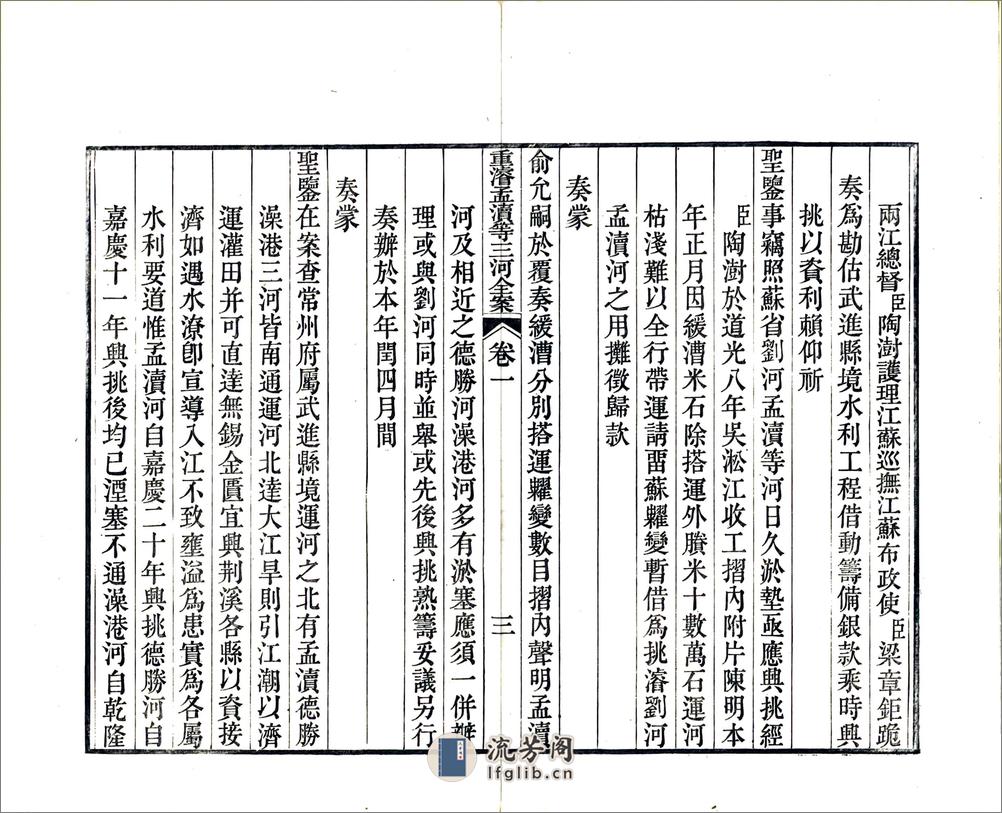 兩江總督臣陶澍護理江蘇巡撫江蘇布政使臣梁章鉅跪
奏爲勘估武進縣境水利工程借動籌備銀款乘時興
挑以資利賴仰祈
聖鑒事竊照蘇省劉河孟瀆等河日久淤墊亟應興挑經
臣陶澍於道光八年吳淞江收工摺內附片陳明本
年正月因緩漕米石除搭運外賸米十數萬石運河
枯淺難以全行帶運請畱蘇糶變暫借爲挑濬劉河
孟瀆河之用攤徵歸款
奏蒙
俞允嗣於覆奏緩漕分別搭運糶變數目摺內聲明孟瀆
重濬孟瀆等三河全案 卷一 三
河及相近之德勝河澡港河多有淤塞應須一併辦
理或與劉河同時並舉或先後興挑熟籌妥議另行
奏辦於本年閏四月間
奏蒙
聖鑒在案查常州府屬武進縣境運河之北有孟瀆德勝
澡港三河皆南通運河北達大江旱則引江潮以濟
運灌田并可直達無錫金匱宜興荆溪各縣以資接
濟如遇水潦卽宣導入江不致壅溢爲患實爲各屬
水利要道惟孟瀆河自嘉慶二十年興挑德勝河自
嘉慶十一年興挑後均已湮塞不通澡港河自乾隆
流芳阁
lfglib.cn